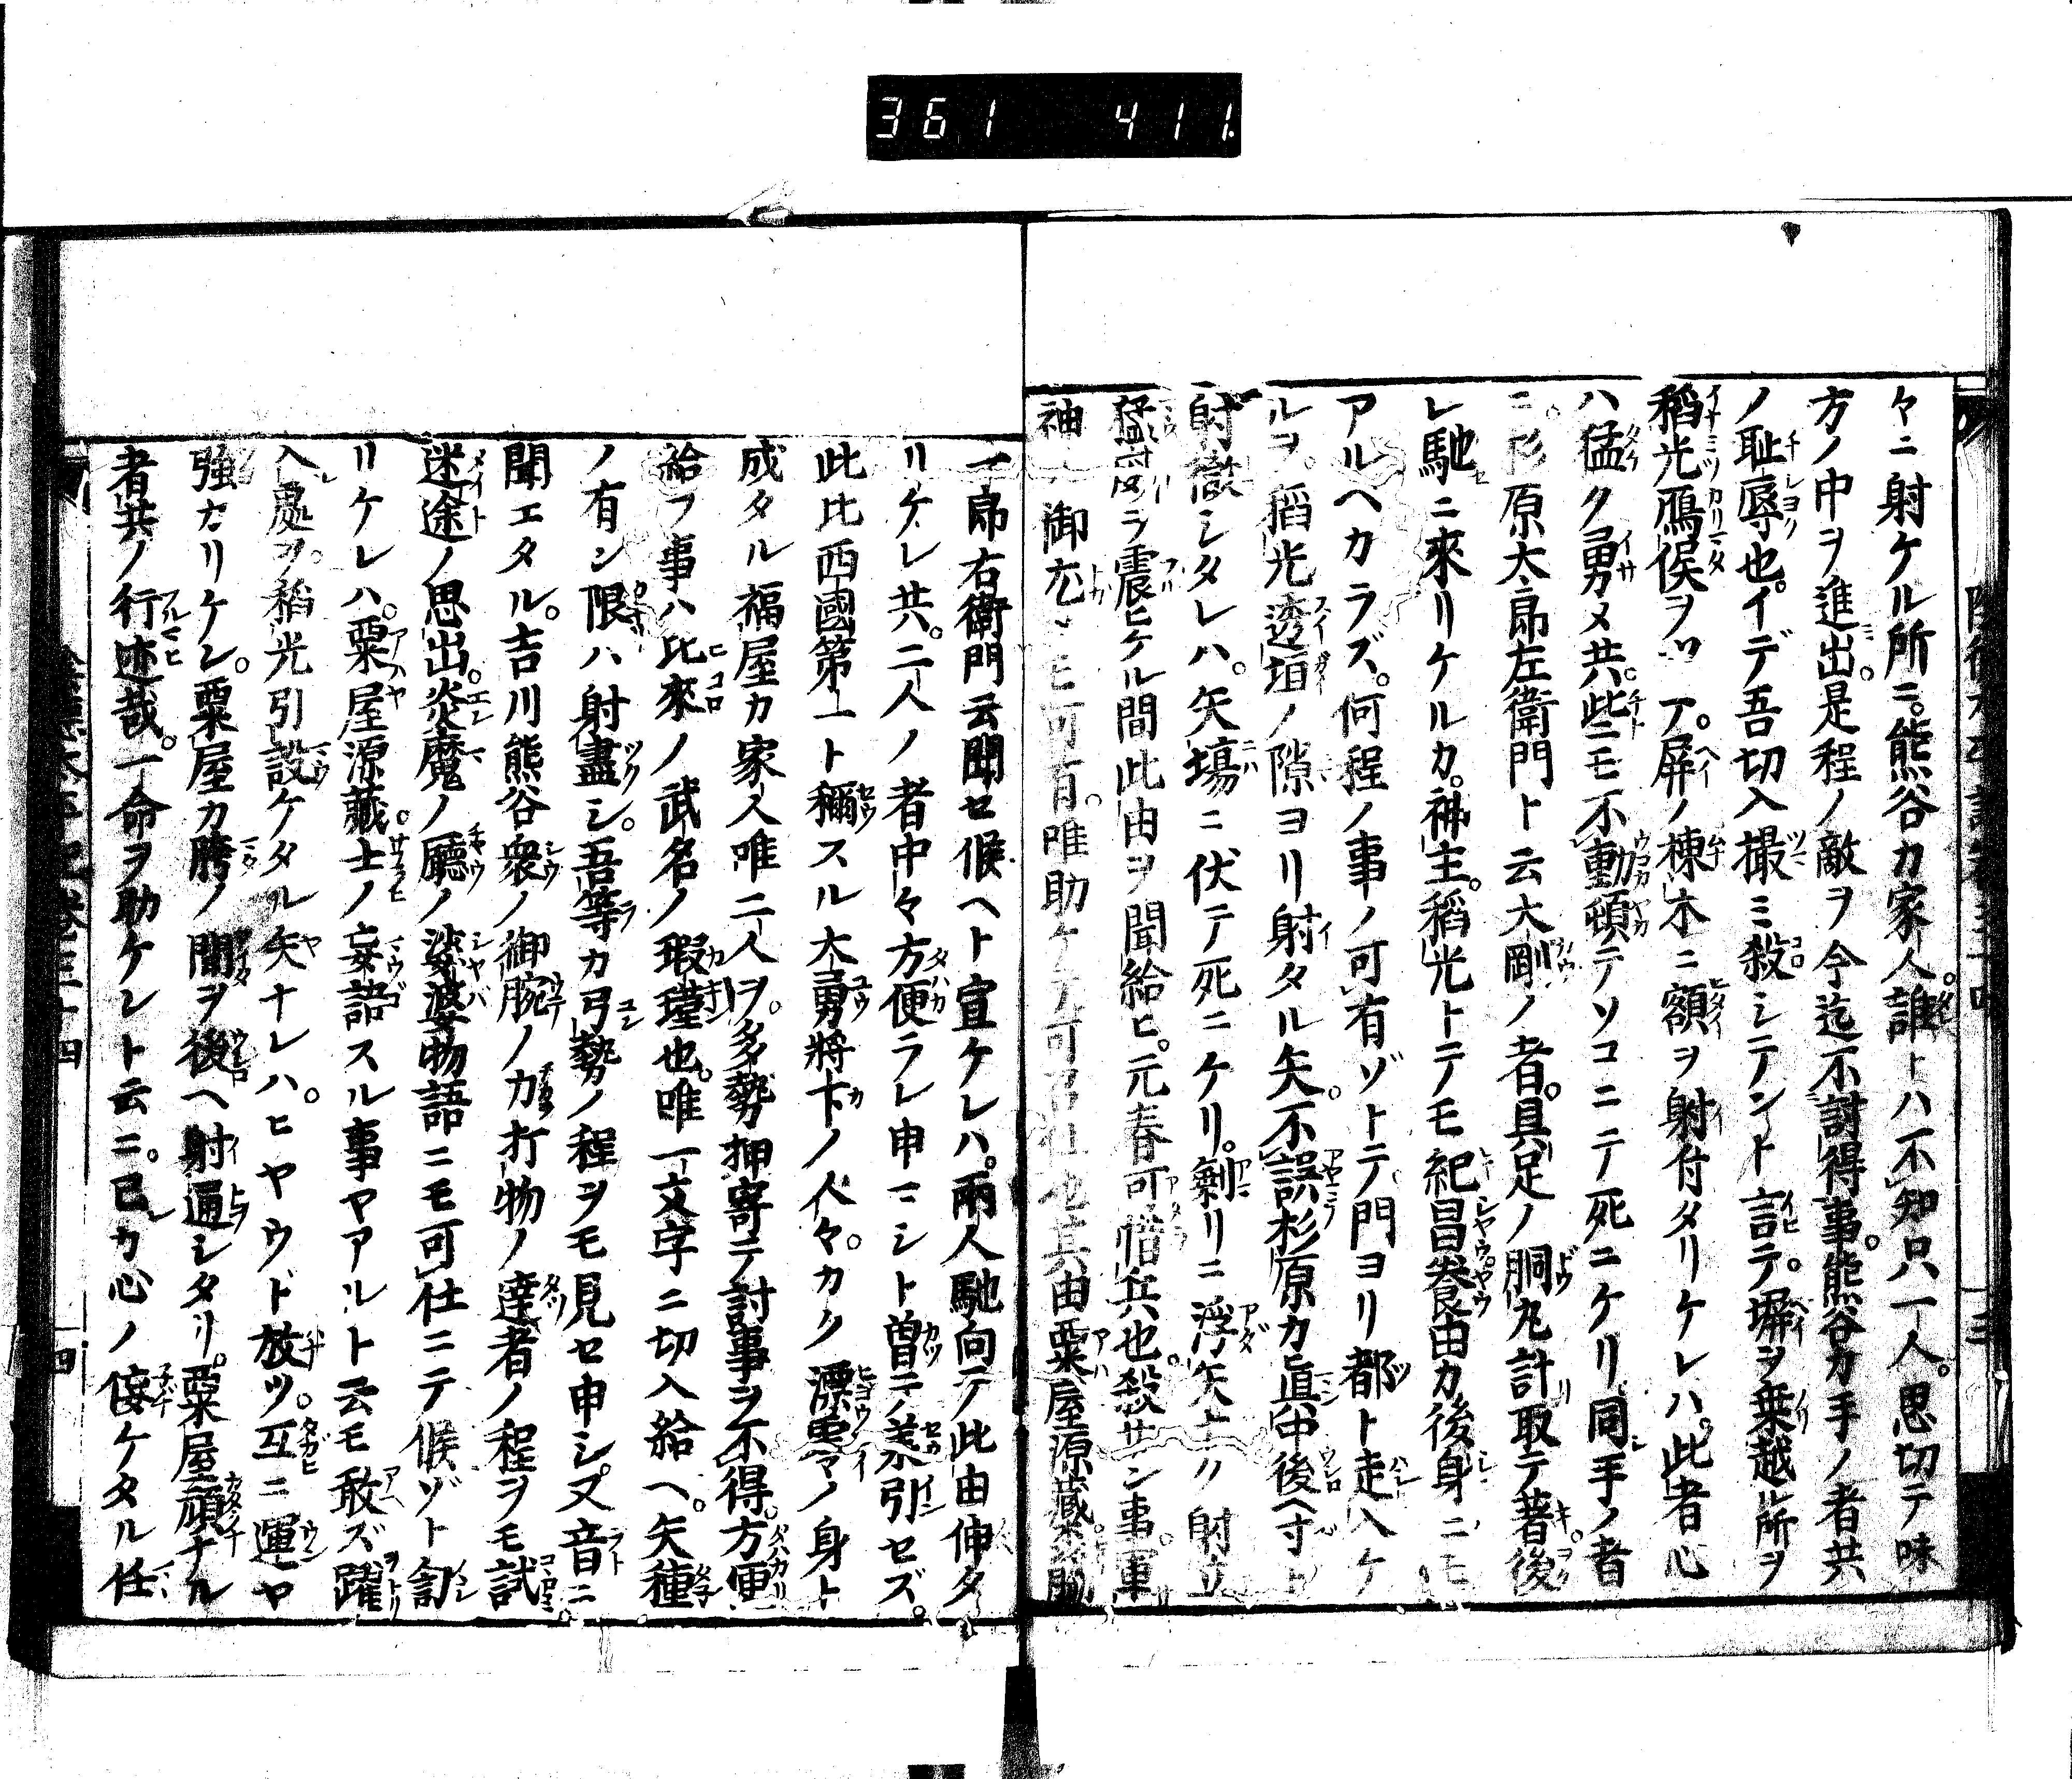 361 411
々ニ射ケル所ニ。熊谷カ家人。誰トハ不知只一人。思切テ味
方ノ中ヲ進出。是程ノ敵ヲ今迄不討得事。熊谷カ手ノ者共
ノ恥辱也。イデ吾切入撮ミ殺シテント言テ。塀ヲ乗越ル所ヲ
稻光鴈俣ヲツ ア。屏ノ棟木ニ額ヲ射付タリケレハ。此者心
ハ猛ク勇メ共。些モ不動頓テソコニテ死ニケリ同手ノ者
ニ。杉原大郎左衛門ト云大剛ノ者。具足ノ胴丸計取テ著後
レ馳ニ來リケルカ。神主。稻光トテモ紀昌養由カ後身ニモ
アルヘカラズ。何程ノ事ノ可有ゾトテ門ヨリ都ト走ハケ
ルヲ。稻光透垣ノ隙ヨリ射タル矢。不誤杉原カ眞中後ヘ寸ト
射徹シタレハ。矢塲ニ伏テ死ニケリ。剩リニ浮矢ニ射立
猛ラ震ヒケル間此由ヲ聞給ヒ。元春可惜兵也。殺サン事。軍
神 御モ可有。唯助ケテ可召仕也其由粟屋源藏
一郎右衛門云聞セ候ヘト宣ケレハ。兩人馳向テ此由伸タ
リケレ共。二人ノ者中々方便ラレ申マシト曽テ義引セズ。
此比西國第一ト稱スル大勇將下ノ人々。カク漂零ノ身ト
成タル福屋カ家人唯二人ヲ。多勢押寄テ討事ヲ不得。方便
給フ事ハ比來ノ武名ノ瑕瑾也。唯一文字ニ切入給ヘ。矢種
ノ有ン限ハ射盡シ。吾等カ弓勢ノ程ヲモ見セ申シ。又音ニ
聞エタル。吉川熊谷衆ノ御腕ノ力打物ノ達者ノ程ヲモ試。
迷途ノ思出。炎魔ノ廳ノ娑婆物語ニモ可仕ニテ候ゾト訇
リケレハ。粟屋源藏。士ノ妄語スル事ヤアルト云モ敢ズ躍
入處ヲ。稻光引設ケタル矢ナレハ。ヒヤウド放ツ。互ニ運ヤ
強カリケン。粟屋カ膀ノ間ヲ後ヘ射通シタリ。粟屋頑ナル
者共ノ行迹哉。一命ヲ助ケント云ニ。己カ心ノ侫ケタル任